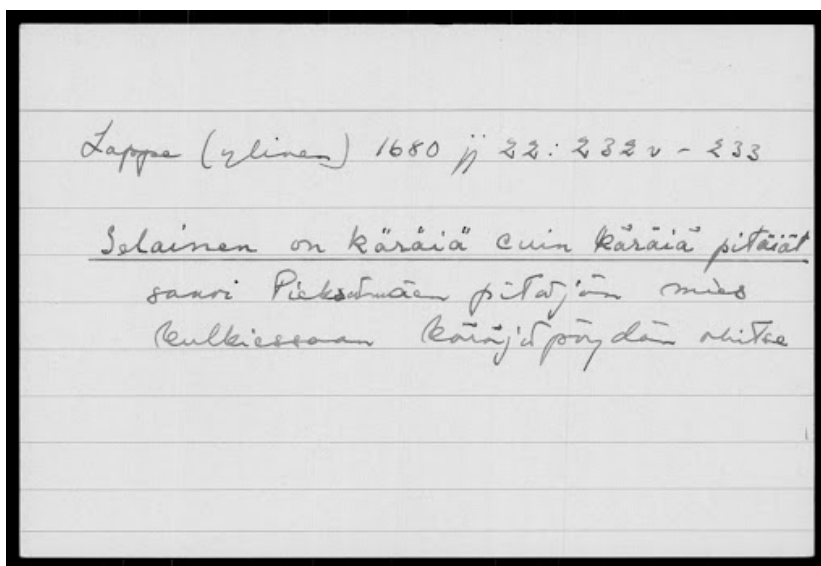 Lappe (ylinen) 1680 jj 22: 232 v - 233
Selainen on käräiä cuin käräiä pitäiät
sanoi Pieksämäen pitäjän mies
kulkiessaan käräjäpöydän ohitse